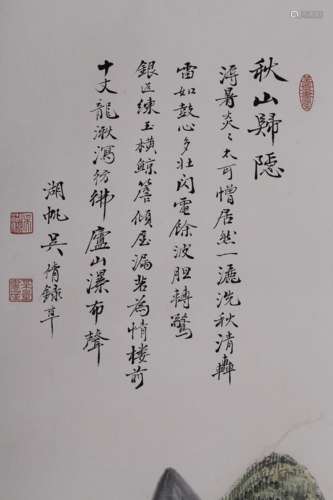 秋山歸隱
溽暑炎々太可憎居然一灑洗秋清轟
雷如鼓心多壯閃電餘波胆轉驚
銀匹練玉橫鯨簷傾屋漏若為情樓前
十丈龍湫瀉彷彿廬山瀑布聲
湖帆吳倩錄